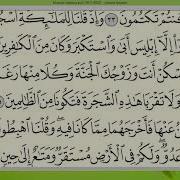 كُنتُمْ تَكْتُمُونَ ٣٣ وَإِذْ قُلْنَا لِلْمَلَٰٓئِكَةِ ٱسْجُ
إِلَّآ إِبْلِيسَ أَبَىٰ وَٱسْتَكْبَرَ وَكَانَ مِنَ ٱلْكَٰفِرِينَ
ٱسْكُنْ أَنتَ وَزَوْجُكَ ٱلْجَنَّةَ وَكُلَا مِنْهَا رَغَدًا
وَلَا تَقْرَبَا هَٰذِهِ ٱلشَّجَرَةَ فَتَكُونَا مِنَ ٱلظَّٰلِمِينَ
عَنْهَا فَأَخْرَجَهُمَا مِمَّا كَانَا فِيهِ ۖ وَقُلْنَا ٱهْبِطُوا۟
عَدُوٌّ ۖ وَلَكُمْ فِى ٱلْأَرْضِ مُسْتَقَرٌّ وَمَتَٰعٌ إِلَىٰ حِينٍ